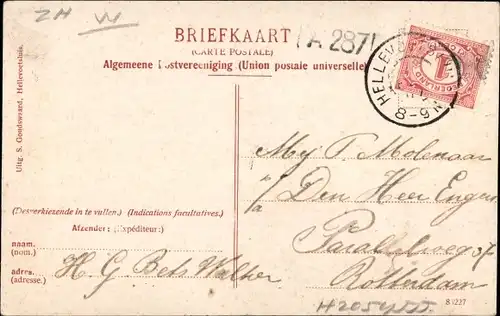 ZH W
BRIEFKAART
(CARTE POSTALE)
A 287
Algemeene Postvereeniging (Union postale universelle)
HELLEVOETSLUIS
8-9 N
NEDERLAND
1
Uitg. S. Goudswaard, Hellevoetsluis.
Mej P. Molenaar
p/a Den Heer Engers
Parallelweg
Rotterdam
(Desverkiezende in te vullen.) (Indications facultatives.)
Afzender: (Expéditeur:)
naam.
(nom.)
adres.
(adresse.)
H G Bets Walther
H205455
8 227